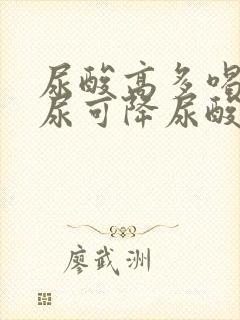 尿酸高多喝
尿可降尿酸
廖武洲